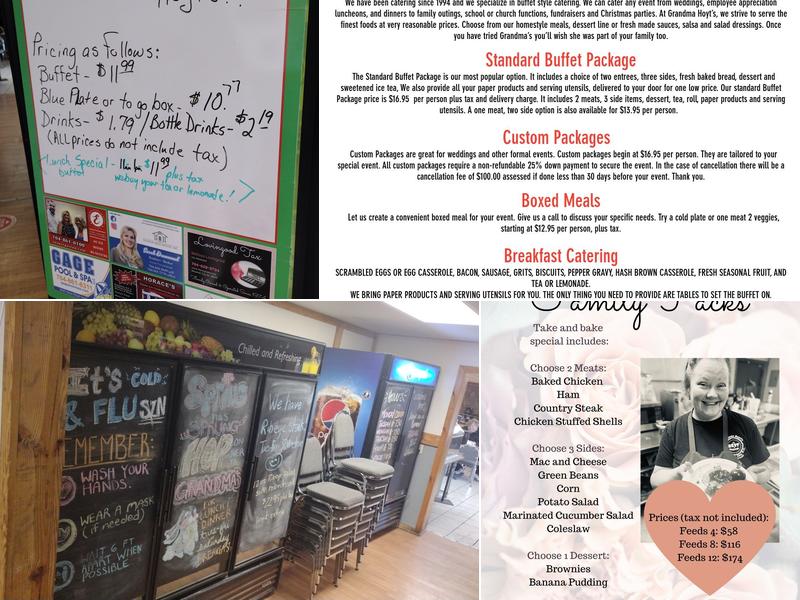 Pricing as follows:
Buffet - $11.99
Blue Plate or to go box - $10.77
Drinks - $1.79 / Bottle Drinks - $2.19
(ALL prices do not include tax)
Lunch Special - $11.99 plus tax
buffet we buy your tea or lemonade!
Lovingood Tax
GAGE
POOL & SPA
HORACE'S
We have been catering since 1994 and we specialize in buffet style catering. We can cater any event from weddings, employee appreciation
luncheons, and dinners to family outings, school or church functions, fundraisers and Christmas parties. At Grandma Hoyt's, we strive to serve the
finest foods at very reasonable prices. Choose from our homestyle meats, dessert line or fresh made sauces, salsa and salad dressings. Once
you have tried Grandma's you'll wish she was part of your family too.
Standard Buffet Package
The Standard Buffet Package is our most popular option. It includes a choice of two entrees, three sides, fresh baked bread, dessert and
sweetened ice tea, We also provide all your paper products and serving utensils, delivered to your door for one low price. Our standard Buffet
Package price is $16.95 per person plus tax and delivery charge. It includes 2 meats, 3 side items, dessert, tea, roll, paper products and serving
utensils. A one meat, two side option is also available for $13.95 per person.
Custom Packages
Custom Packages are great for weddings and other formal events. Custom packages begin at $16.95 per person. They are tailored to your
special event. All custom packages require a non-refundable 25% down payment to secure the event. In the case of cancellation there will be a
cancellation fee of $100.00 assessed if done less than 30 days before your event. Thank you.
Boxed Meals
Let us create a convenient boxed meal for your event. Give us a call to discuss your specific needs. Try a cold plate or one meat 2 veggies,
starting at $12.95 per person, plus tax.
Breakfast Catering
SCRAMBLED EGGS OR EGG CASSEROLE, BACON, SAUSAGE, GRITS, BISCUITS, PEPPER GRAVY, HASH BROWN CASSEROLE, FRESH SEASONAL FRUIT, AND
TEA OR LEMONADE.
WE BRING PAPER PRODUCTS AND SERVING UTENSILS FOR YOU. THE ONLY THING YOU NEED TO PROVIDE ARE TABLES TO SET THE BUFFET ON.
Chilled and Refreshing
COLD
& FLU SZN
REMEMBER:
WASH YOUR
HANDS.
WEAR A MASK
(if needed)
WAIT 6 FT
APART WHEN
POSSIBLE
Spring
GRANDMAS
LUNCH
DINNER
We have
pepsi
Family Packs
Take and bake
special includes:
Choose 2 Meats:
Baked Chicken
Ham
Country Steak
Chicken Stuffed Shells
Choose 3 Sides:
Mac and Cheese
Green Beans
Corn
Potato Salad
Marinated Cucumber Salad
Coleslaw
Choose 1 Dessert:
Brownies
Banana Pudding
Prices (tax not included):
Feeds 4: $58
Feeds 8: $116
Feeds 12: $174